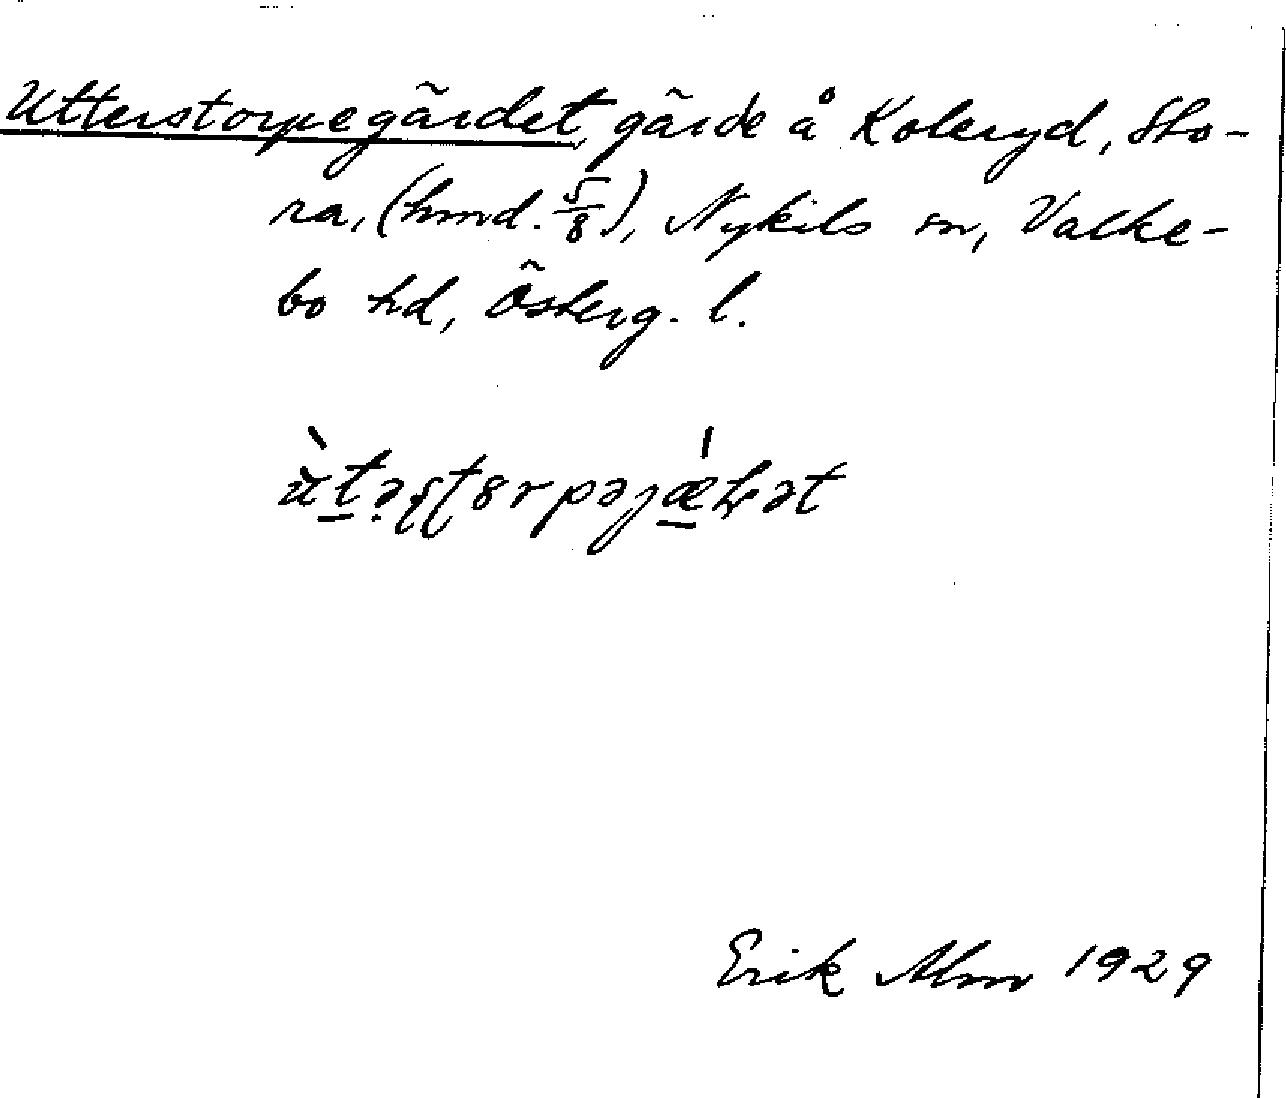 Utterstorpegärdet, gärde å Koleryd, Sto-
ra, (hmd. 5/8), Nykils sn, Valke-
bo hd, Österg. l.
Erik Alm 1929